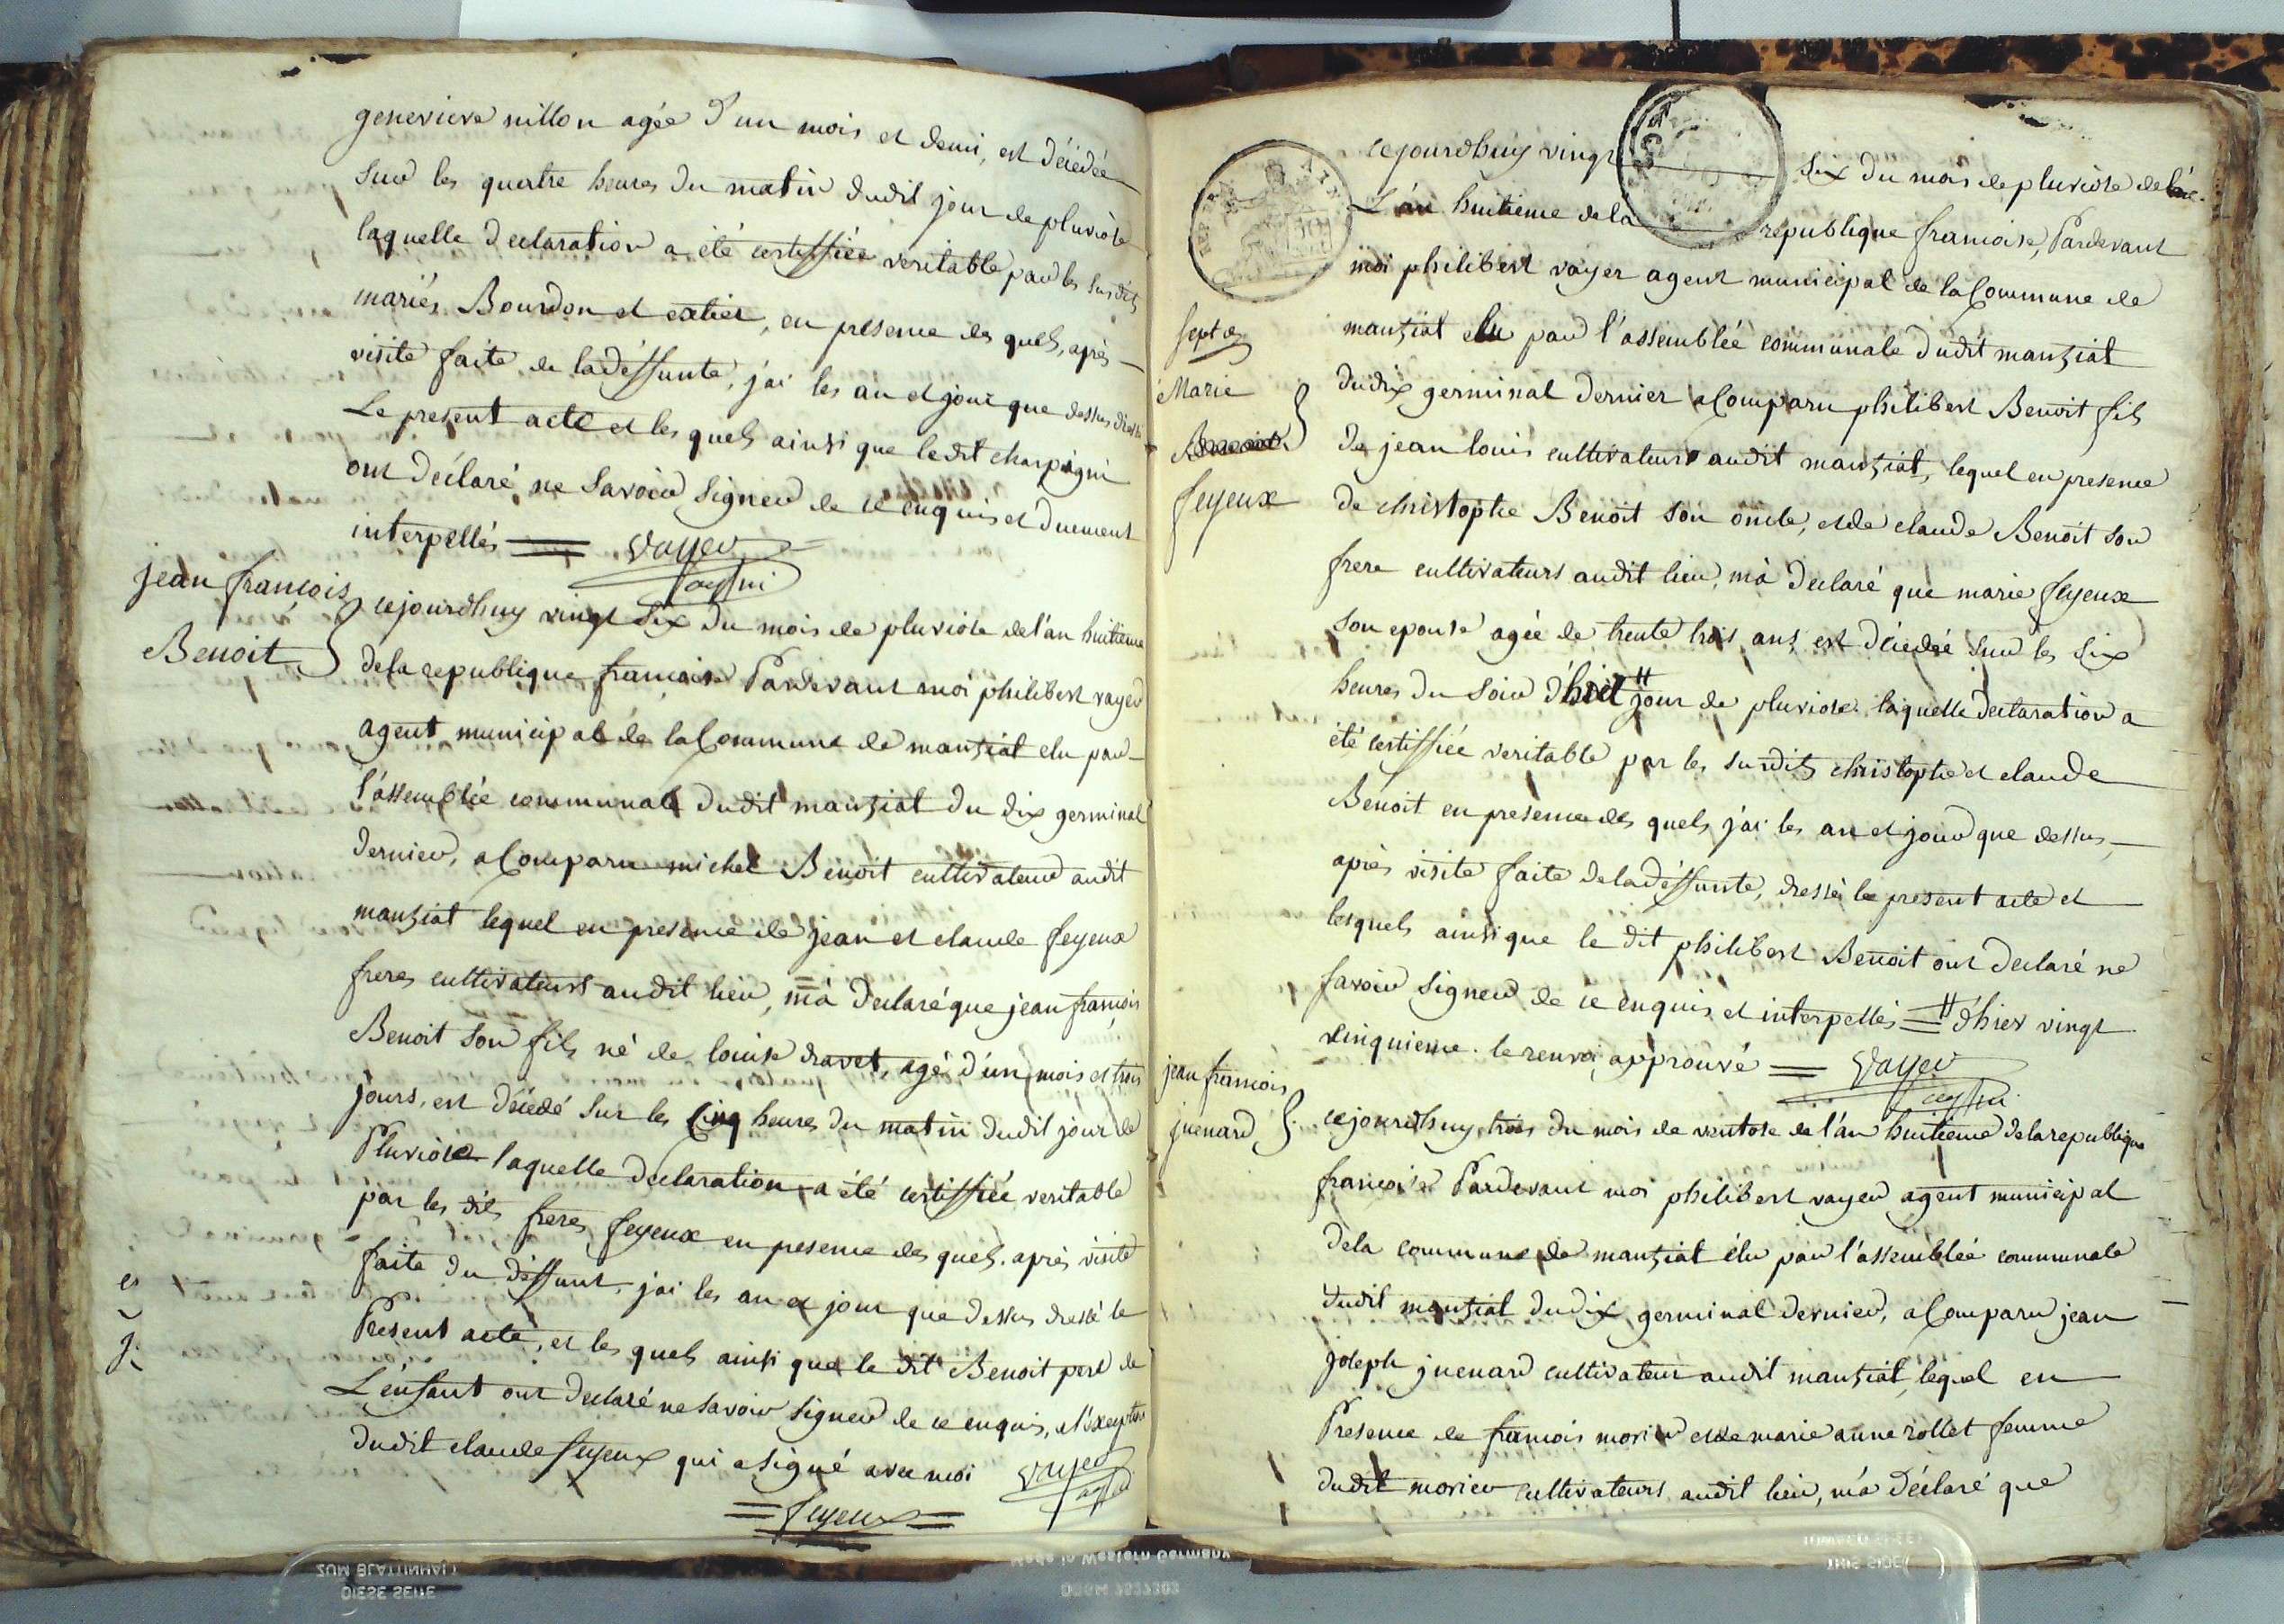 genevieve nillon agée d'un mois et demi, est décédée
sur les quatre heures du matin dudit jour de pluviose
laquelle declaration a été certiffiée veritable par les susdits
mariés Bourdon et catier, en presence des quels, après
visite faite de la deffunte, j'ai les an et jour que dessus dressé
Le present acte et les quels ainsi que ledit charpigni
ont déclaré ne savoir signer de ce enquis et duement
interpellés = voyer
agt mi
jean francois
Benoit
cejourdhuy vingt six du mois de pluviose de l'an huitieme
dela republique francoise Pardevant moi philibert voyer
agent municipal de la Commune de mantziat elu par
l'assemblée communale dudit mantziat du dix germinal
dernier, a Comparu michel Benoit cultivateur audit
mantziat lequel en presence de jean et claude feyeux
freres cultivateurs audit lieu, m'a declaré que jean francois
Benoit son fils né de louise dravet, agé d'un mois et trois
jours, est décédé sur les Cinq heures du matin dudit jour de
Pluviose laquelle declaration a été certiffiée veritable
par les dits freres feyeux en presence des quels, après visite
faite du deffunt, j'ai les an et jour que dessus dressé le
Present acte, et les quels ainsi que le dit Benoit pere de
L'enfant ont declaré ne savoir signer de ce enquis, et excepté
dudit claude feyeux qui a signé avec moi voyer
agt mi
= feyeux =
cejourdhuy vingt six du mois de pluviose de
L'an huitieme de la republique francoise, Pardevant
moi philibert voyer agent municipal de la Commune de
mantziat elu par l'assemblée communale dudit mantziat
du dix germinal dernier a Comparu philibert Benoit fils
de jean louis cultivateur audit mantziat, lequel en presence
de christophe Benoit son oncle, et de claude Benoit son
frere cultivateurs audit lieu, m'a declaré que marie feyeux
son epouse agée de trente trois ans, est décédée sur les six
heures du soir d'hier # jour de pluviose. laquelle declaration a
été certiffiée veritable par les susdits christophe et claude
Benoit en presence des quels j'ai les an et jour que dessus,
après visite faite de la deffunte, dressé le present acte et
lesquels ainsi que le dit philibert Benoit ont declaré ne
savoir signer de ce enquis et interpellés = # d'hier vingt
cinquieme. le renvoi approuvé = voyer
agt mi
Marie
feyeux
jean francois
juenard
cejourdhuy trois du mois de ventose de l'an huitieme de la republique
francoise Pardevant moi philibert voyer agent municipal
dela commune de mantziat élu par l'assemblée communale
dudit mantziat du dix germinal dernier, a Comparu jean
joseph juenard cultivateur audit mantziat, lequel en
Presence de francois morier et de marie anne rollet femme
dudit morier cultivateurs audit lieu, m'a déclaré que